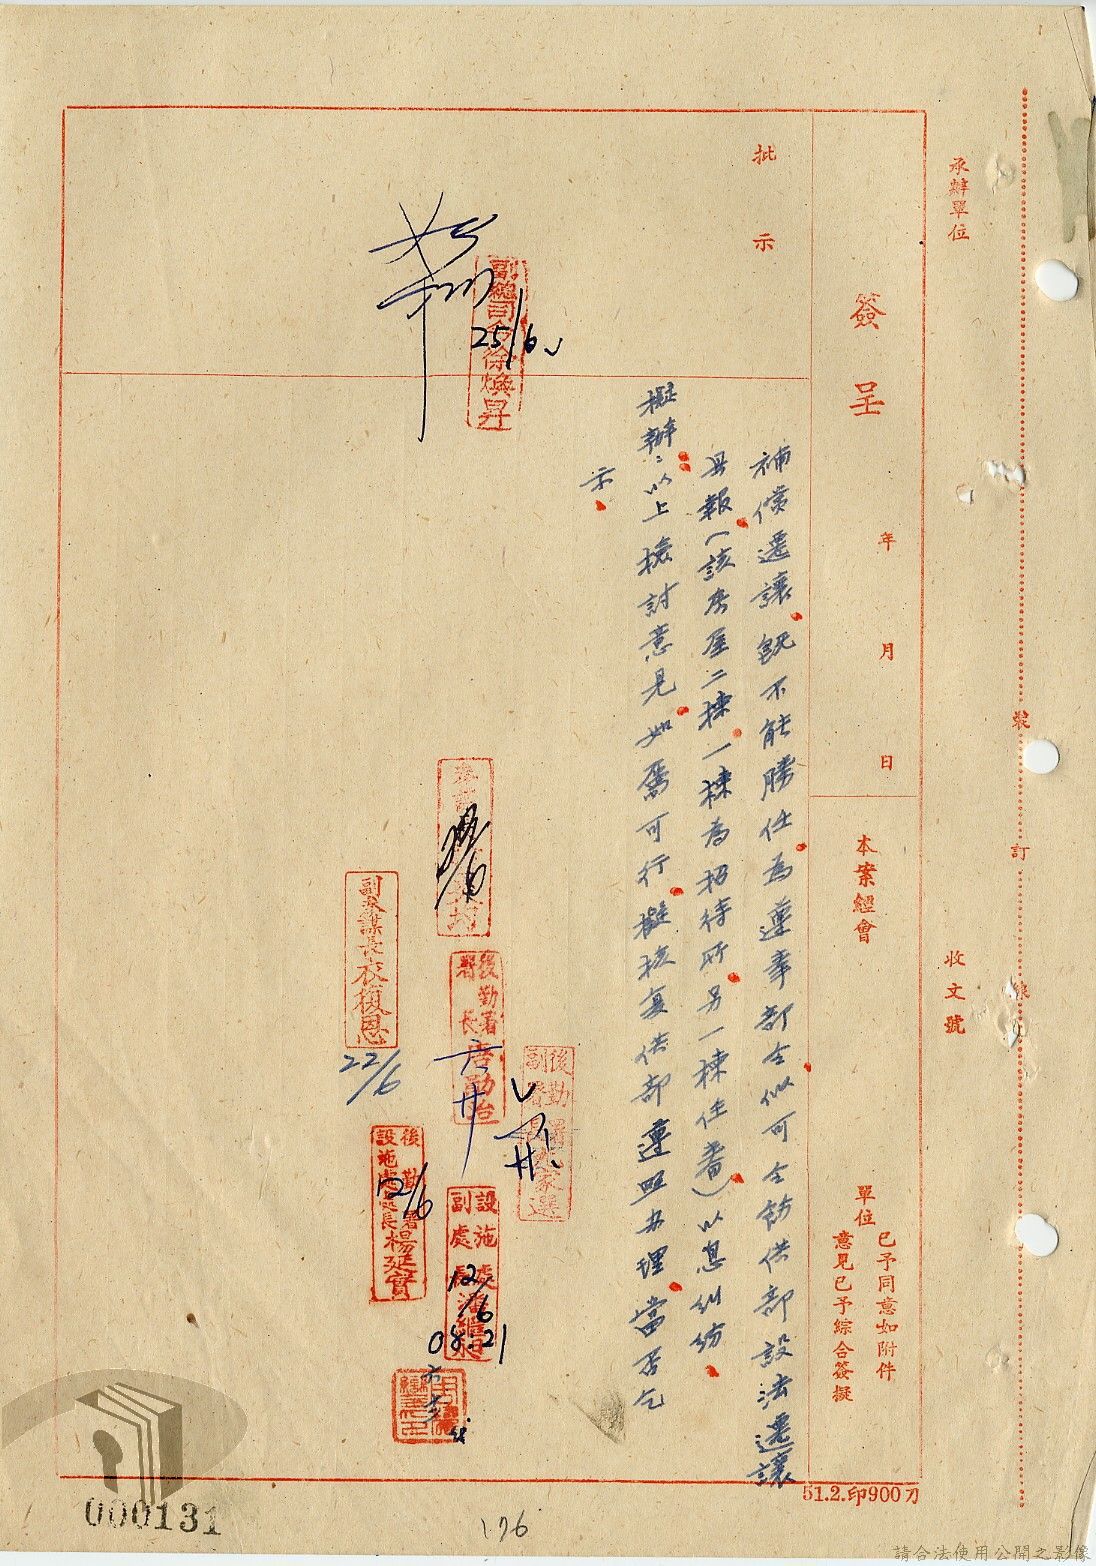 承辦單位
收文號
裝
訂
線
簽呈
年 月 日
本案經會
單位
已予同意如附件
意見已予綜合簽擬
批示
補償遷讓既不能勝任為遵奉部令似可令飭供部設法遷讓
具報(該房屋二棟一棟為招待所另一棟住眷)以息糾紛
擬辦:以上檢討意見如屬可行擬核复供部遵照办理當否乞
示
副總司令徐煥昇
25/6
後勤署
副署長
家選
後勤署
署長
唐勛治
設施處
副處長
12/6
08:21
後勤署
設施處處長楊延實
12/6
副參謀長衣復恩
22/6
51.2.印900刀
000131
176
請合法使用公開之影像